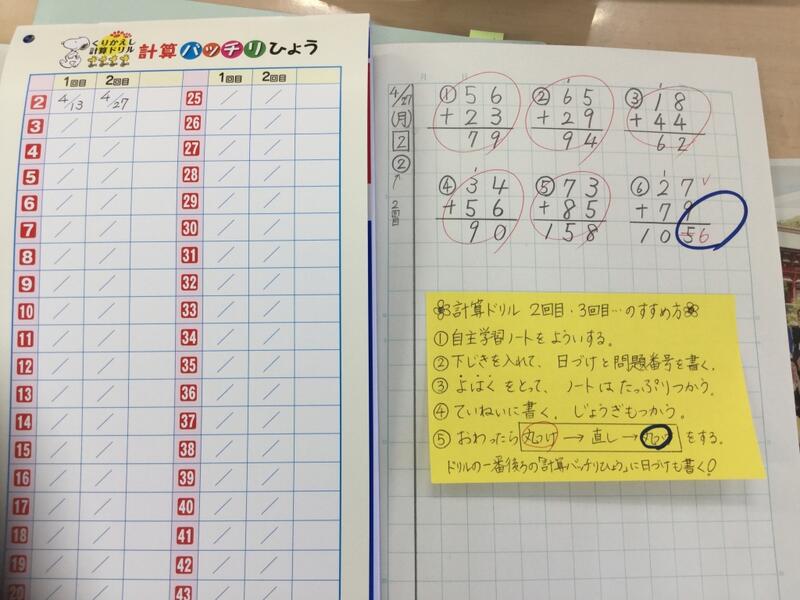 くりかえし
計算ドリル
計算バッチリひょう
1回目 2回目 1回目 2回目
2 4/13 4/27 25 / /
3 / / 26 / /
4 / / 27 / /
5 / / 28 / /
6 / / 29 / /
7 / / 30 / /
8 / / 31 / /
9 / / 32 / /
10 / / 33 / /
11 / / 34 / /
12 / / 35 / /
13 / / 36 / /
14 / / 37 / /
15 / / 38 / /
16 / / 39 / /
17 / / 40 / /
18 / / 41 / /
19 / / 42 / /
20 / / 43 / /
月 日
4/27
(月)
2
②
↑
2回目
① 56
+23
79
② 65
+29
94
③ 18
+44
62
④ 34
+56
90
⑤ 73
+85
158
⑥ 27
+79
105 6
計算ドリル 2回目・3回目…のすすめ方
①自主学習ノートをよういする。
②下じきを入れて、日づけと問題番号を書く。
③よはくをとって、ノートはたっぷりつかう。
④ていねいに書く。じょうぎもつかう。
⑤おわったら丸つけ→直し→丸つけをする。
ドリルの一番後ろの「計算バッチリひょう」に日づけも書く!